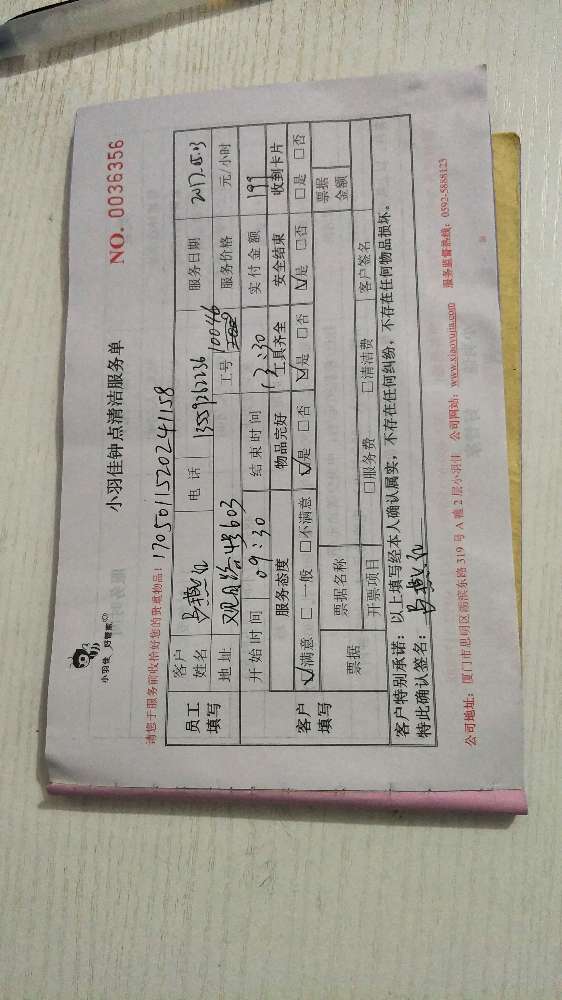 小羽佳 好管家
小羽佳钟点清洁服务单
NO. 0036356
请您于服务前收拾好您的贵重物品! 1705011520241158
员工填写 客户姓名 电话 服务日期 2017.05.03
地址 工号 10046 服务价格 元/小时
客户填写 开始时间 09:30 结束时间 13:30 实付金额 199
服务态度 物品完好 工具齐全 安全结束 收到卡片
☑满意 □一般 □不满意 ☑是 □否 ☑是 □否 ☑是 □否 □是 □否
票据 票据名称 票据金额
开票项目 □服务费 □清洁费 客户签名
客户特别承诺: 以上填写经本人确认属实,不存在任何纠纷,不存在任何物品损坏。
特此确认签名:
公司地址: 厦门市思明区湖滨东路 319 号 A 雅 2 层小羽佳 公司网站: www.xiaoyujia.com 服务监督热线: 0592-5888123